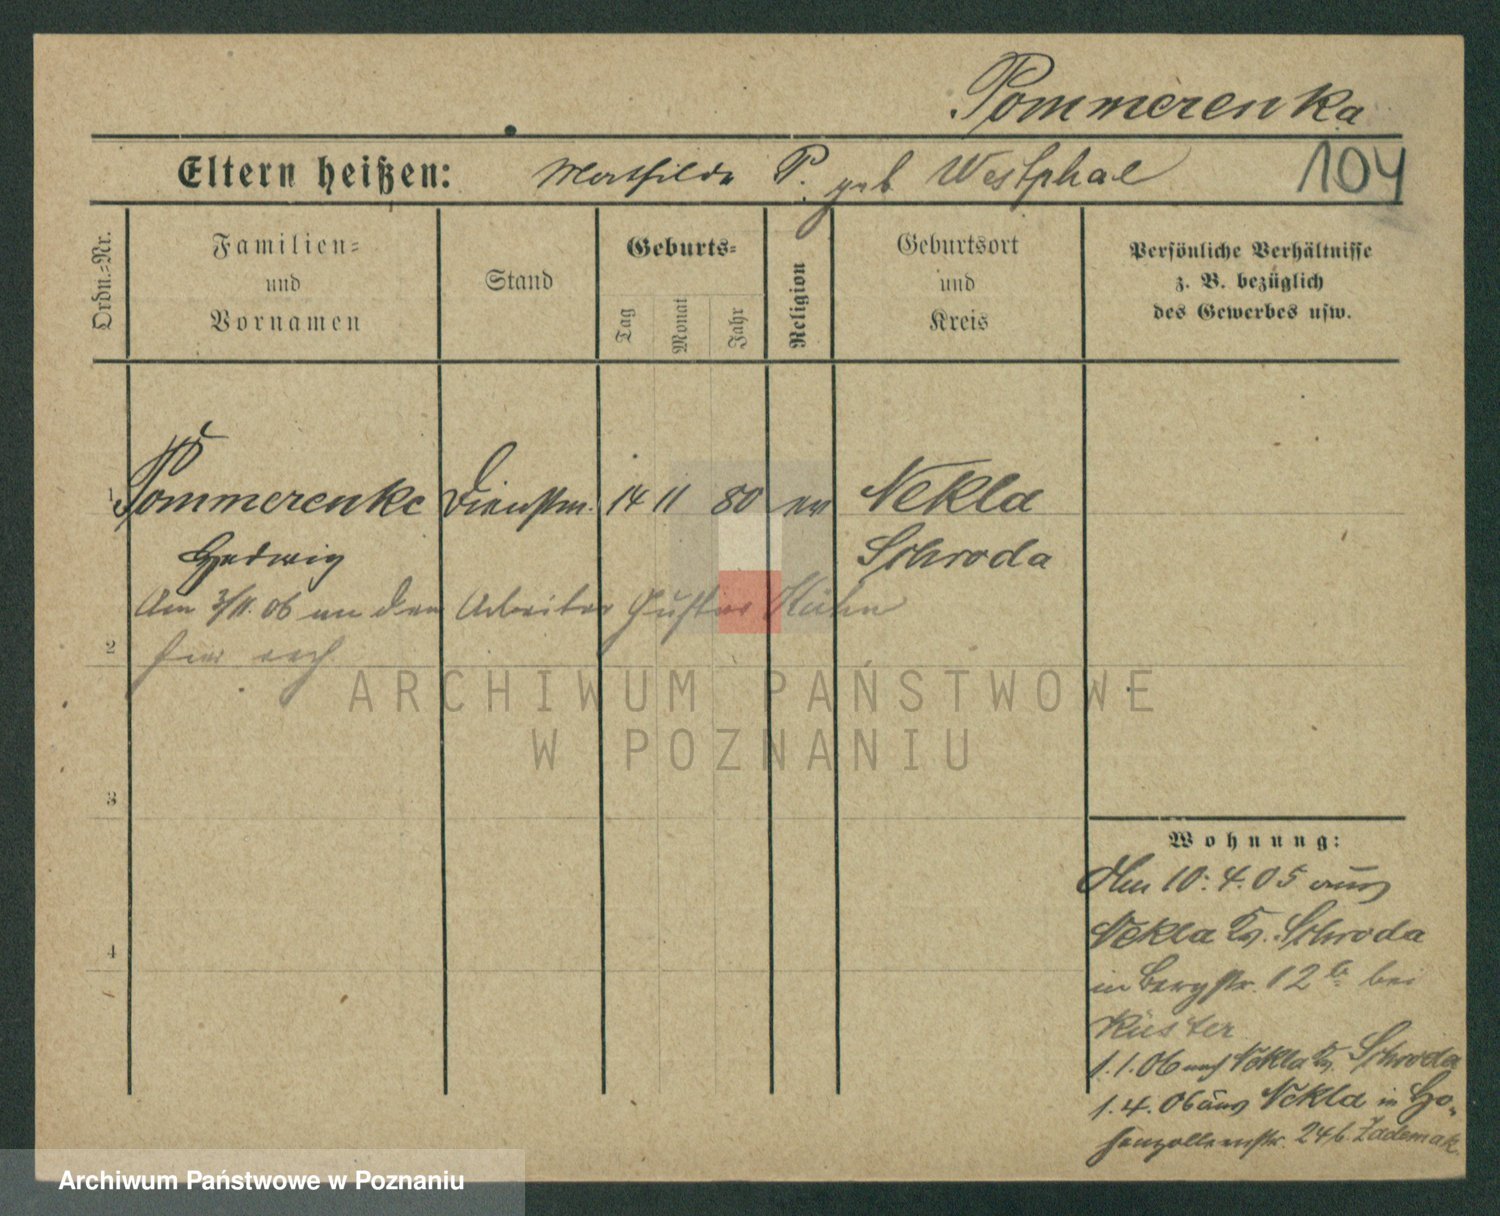 Pommerenka
Eltern heißen: Mathilde P. geb Westphal 104
Ordn.-Nr.
Familien- und Vornamen
Stand
Geburts-
Tag Monat Jahr
Religion
Geburtsort und Kreis
Persönliche Verhältnisse
z. B. bezüglich
des Gewerbes usw.
1 Pommerenke Dienstm. 14 11 80 ev Nekla
Hedwig Schroda
Am 3/11. 06 an den Arbeiter Gustav Kühn
2 hier verh
ARCHIWUM PAŃSTWOWE
W POZNANIU
3
4
Wohnung:
Am 10. 4. 05 aus
Nekla Kr. Schroda
in Bergstr. 12 b bei
Küster
1. 1. 06 nach Nekla Kr. Schroda
1. 4. 06 aus Nekla in Ho-
henzollernstr. 24 b. Zademak
Archiwum Państwowe w Poznaniu